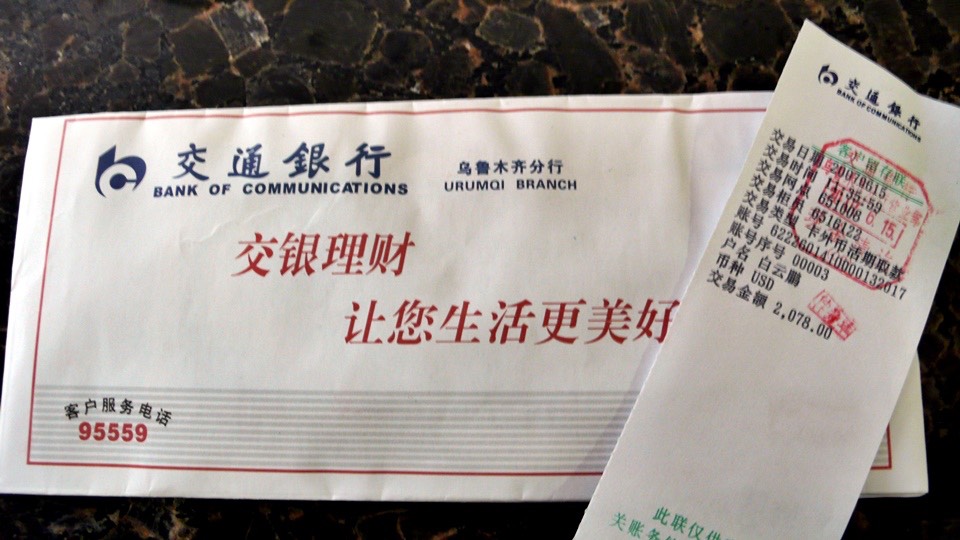 交通銀行
BANK OF COMMUNICATIONS
乌鲁木齐分行
URUMQI BRANCH
交银理财
让您生活更美好
客户服务电话
95559
交通銀行
BANK OF COMMUNICATIONS
客户留存联
交易日期 20070615
交易时间 11:35:59
交易网点 651008
交易柜员 6516123
交易类型 卡外币活期取款
账号 6222601410000132017
账号序号 00003
户名 白云鹏
币种 USD
交易金额 2,078.00
此联仅供
关账务